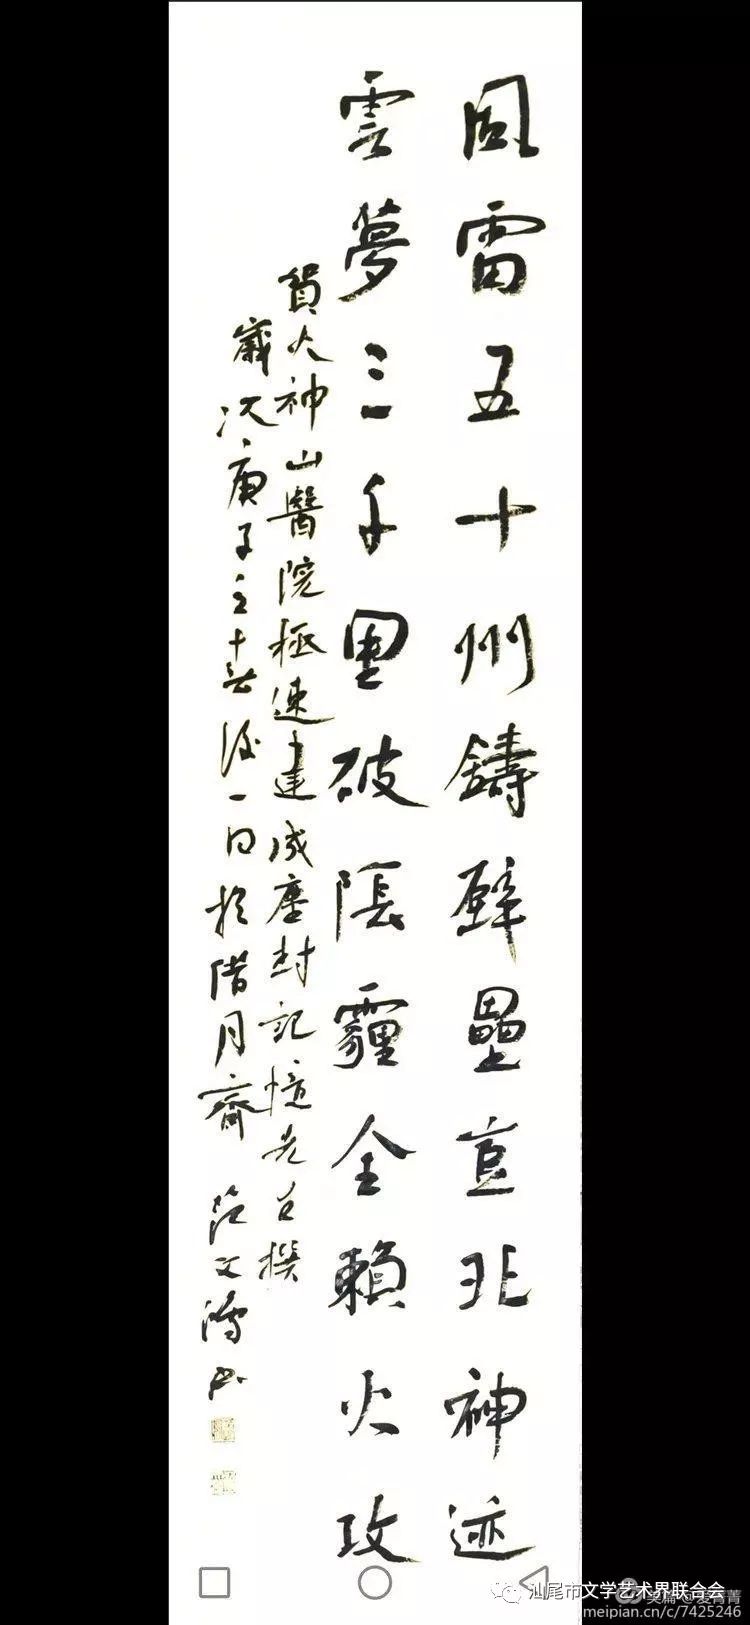 風雷五十州鑄壁壘豈非神迹
雲夢三千里破陰霾全賴火攻
賀火神山醫院極速建成塵封記憶撰
歲次庚子立春後一日於借月齋 范文書
汕尾市文学艺术界联合会
美篇@爱菁菁
meipian.cn/c/7425246